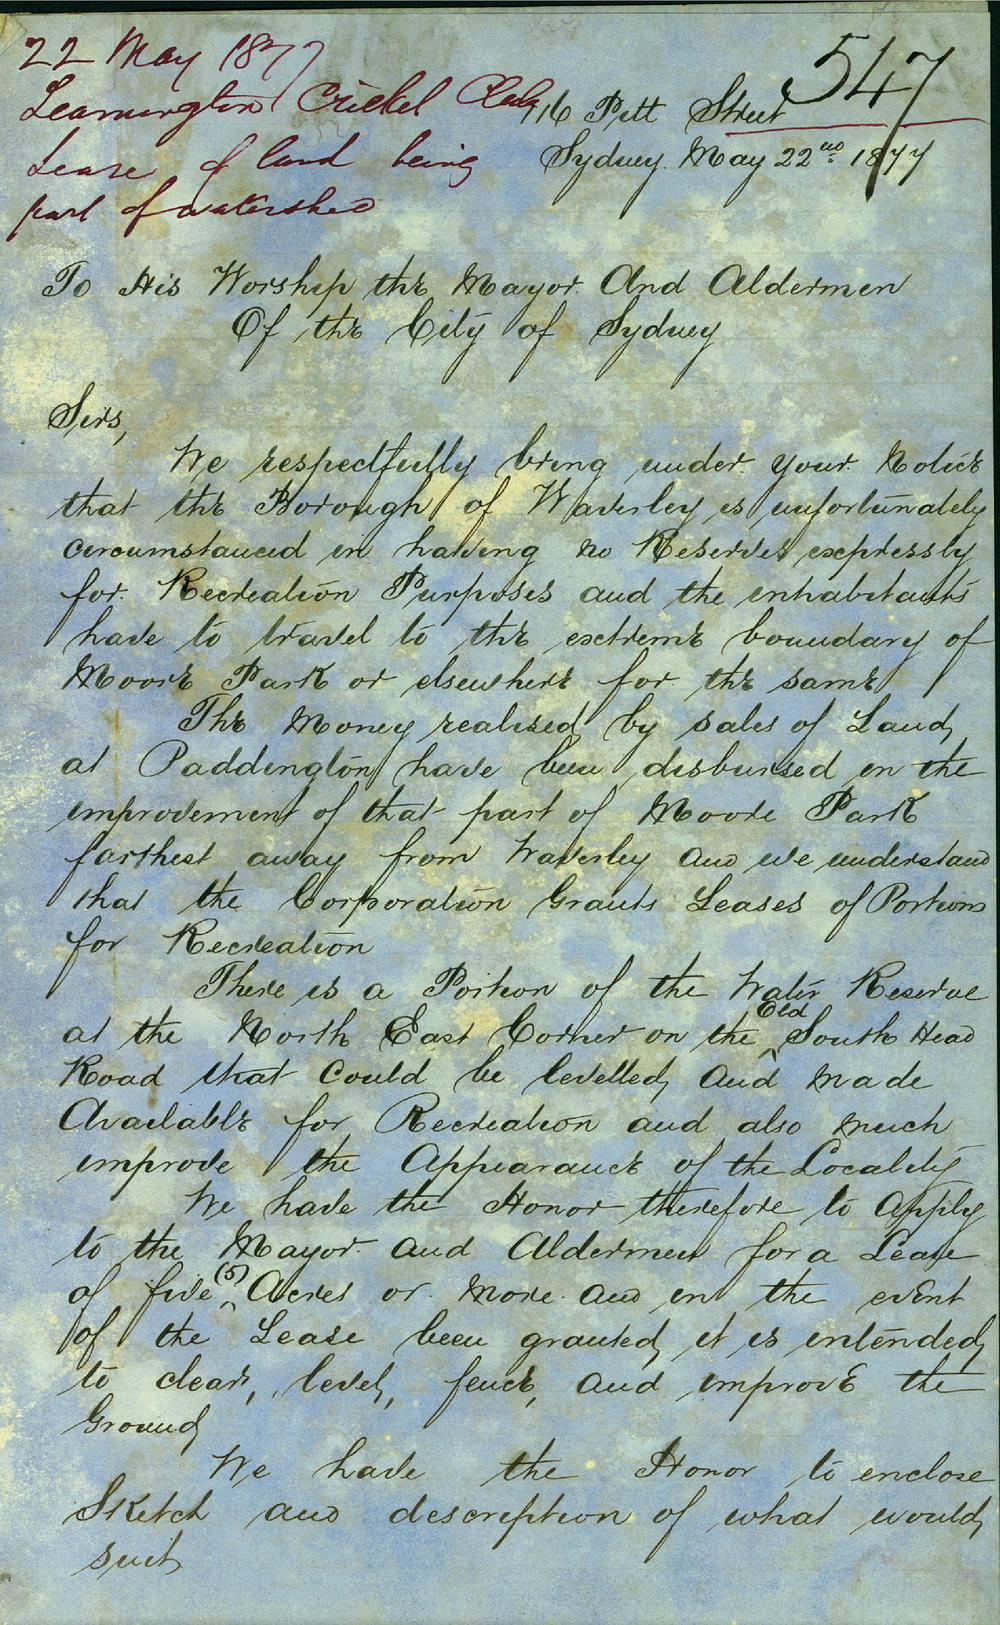 22 May 1877
547
Leamington Cricket Club
116 Pitt Street
Lease of land being
Sydney May 22nd 1877
part of watershed
To His Worship the Mayor And Aldermen
Of the City of Sydney
Sirs,
We respectfully bring under your Notice
that the Borough of Waverley is unfortunately
circumstanced in having no Reserves expressly
for Recreation Purposes and the inhabitants
have to travel to the extreme boundary of
Moore Park or elsewhere for the same
The Money realised by sales of Land
at Paddington have been disbursed in the
improvement of that part of Moore Park
farthest away from Waverley and we understand
that the Corporation Grants Leases of Portions
for Recreation
There is a Portion of the Water Reserve
at the North East Corner on the Old South Head
Road that could be levelled and made
Available for Recreation and also much
improve the Appearance of the Locality
We have the Honor therefore to apply
to the Mayor and Aldermen for a Lease
of five (5) Acres or more and in the event
of the Lease been granted it is intended
to clear, level, fence, and improve the
Ground
We have the Honor to enclose
Sketch and description of what would
suit